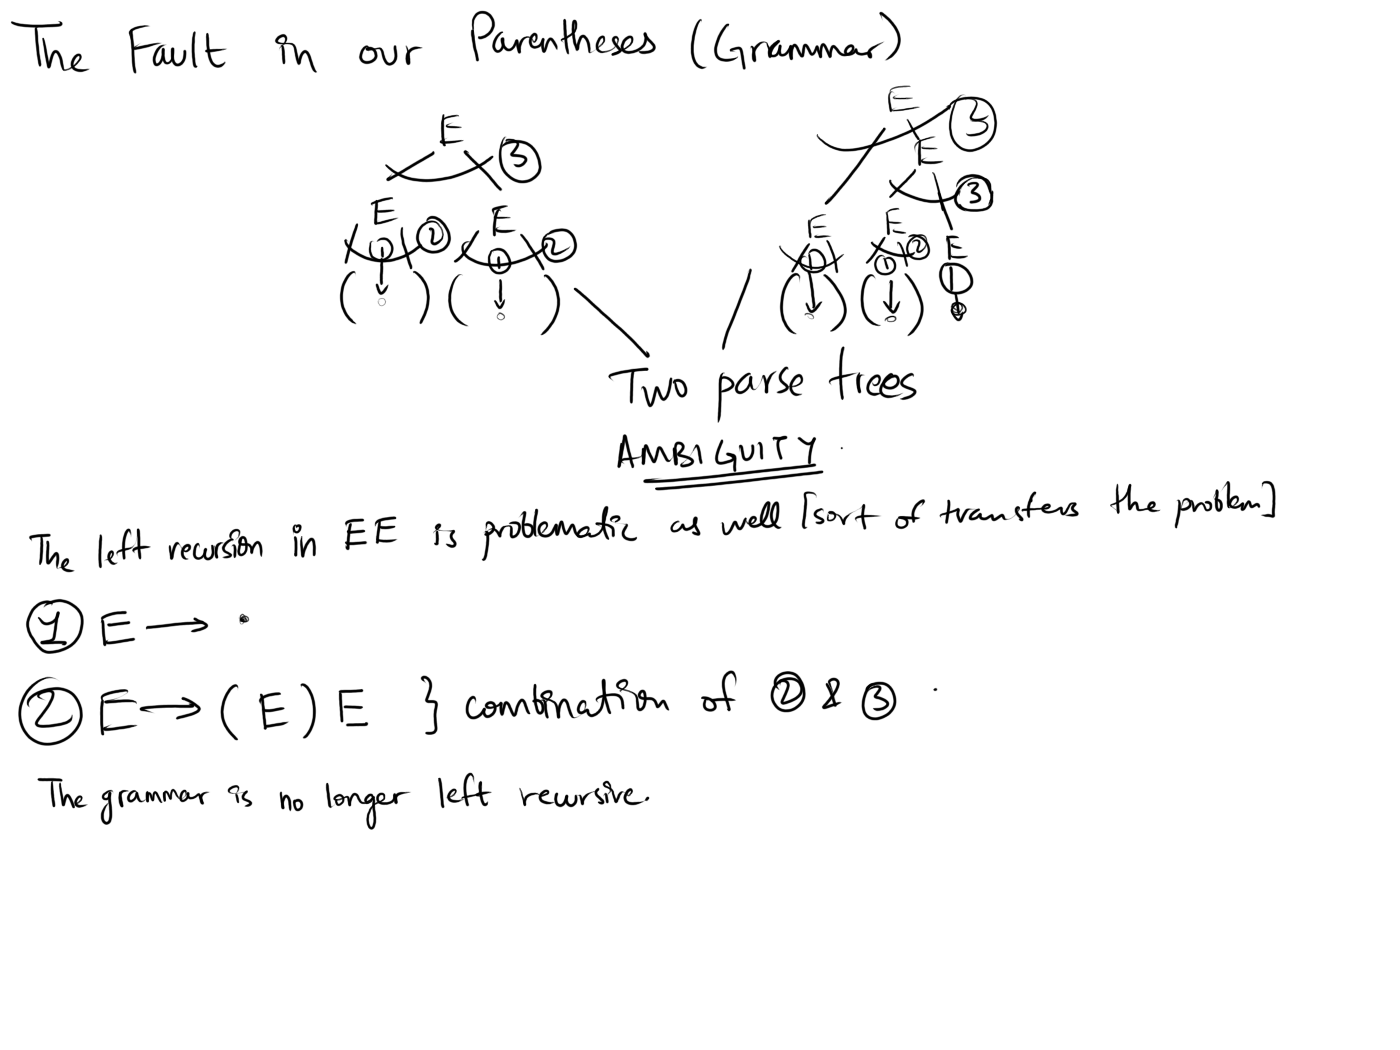 The Fault in our Parentheses (Grammar)
E ③ E ③
E
③
E ② E ② E E ② E
① ① ① ① ①
( ) ( ) ( ) ( )
Two parse trees
AMBIGUITY
The left recursion in EE is problematic as well [sort of transfers the problem]
① E → •
② E → (E) E } combination of ② & ③
The grammar is no longer left recursive.